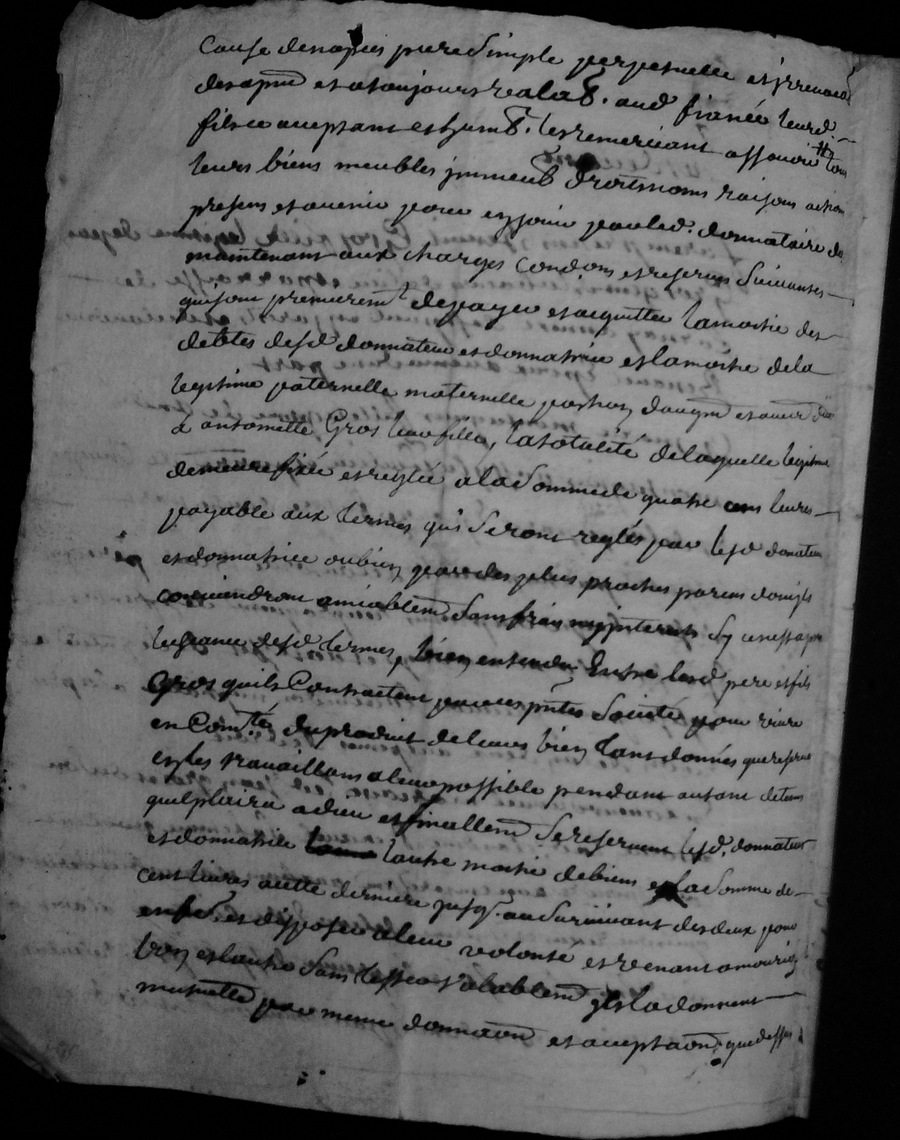 cause de nopces pure simple perpetuelle et irrevocable
des apnt et a toujours valab. aud fiancé leurd.
fils ce aceptant et humb. les remerciant assavoir tous
leurs biens meubles immeub droits noms raisons action
presens et avenir pour en jouir par led. donnataire de
maintenant aux charges condons et reserves suivantes
qui sont premieremt de payer et acquitter la moitié des
debtes desd donnateur et donnatrice et la moitié de la
legitime paternelle maternelle portion daugmt et
a antoinette Gros leur fille, la totalité de laquelle legitime
demeure fixée et reglée a la somme de quatre cens livres
payable aux termes qui seront reglés par lesd donateur
et donnatrice ou bien par des plus proches parens
conviendront amiablemt sans frais ny interets sy ce nest apres
lecheance desd termes, bien entendu entre lesd pere et fils
Gros quils contractent par ces pntes societé pour vivre
en Comté du produit de leurs biens tant donnés que reservés
et les travaillans a leur possible pendant autant de tems
quil plaira a dieu et finallemt se reservent lesd. donnateur
et donnatrice lautre moitié de biens et la somme de
cent livres a cette derniere au survivant des deux pour
en fe. et disposer a leur volonté et venant a mourir
lun et lautre sans lesfect valablemt ils la donnent
par meme donnaon et aceptaon que dessus